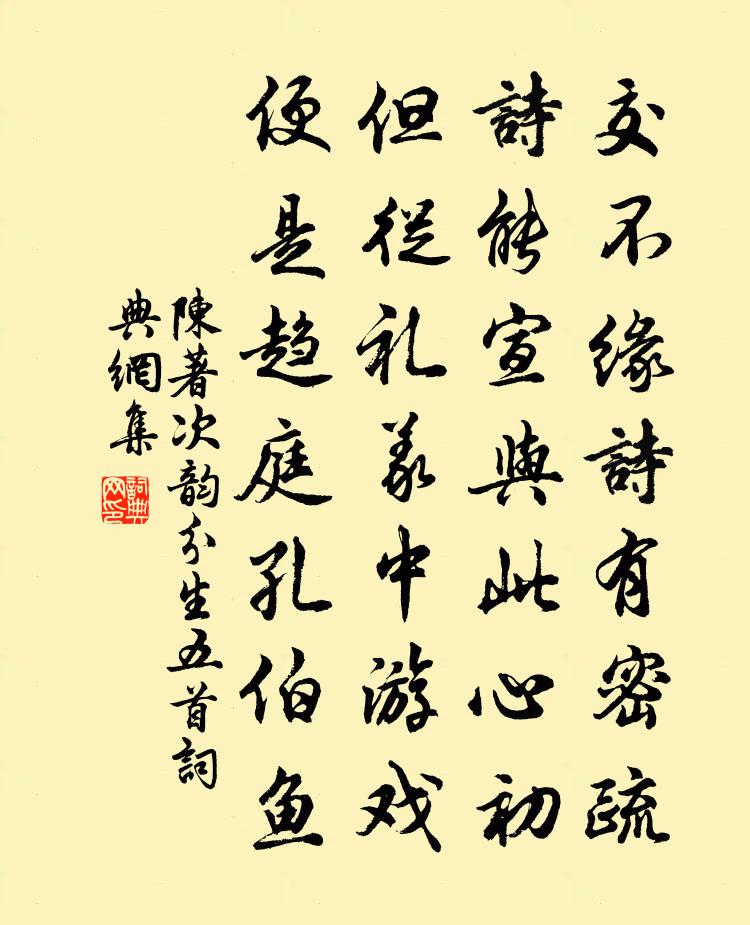 交不缘詩有密疏
詩能宣與此心初
但從礼義中游戏
便是趋庭孔伯鱼
陳著次韵分生五首詞
典網集
詞典网印